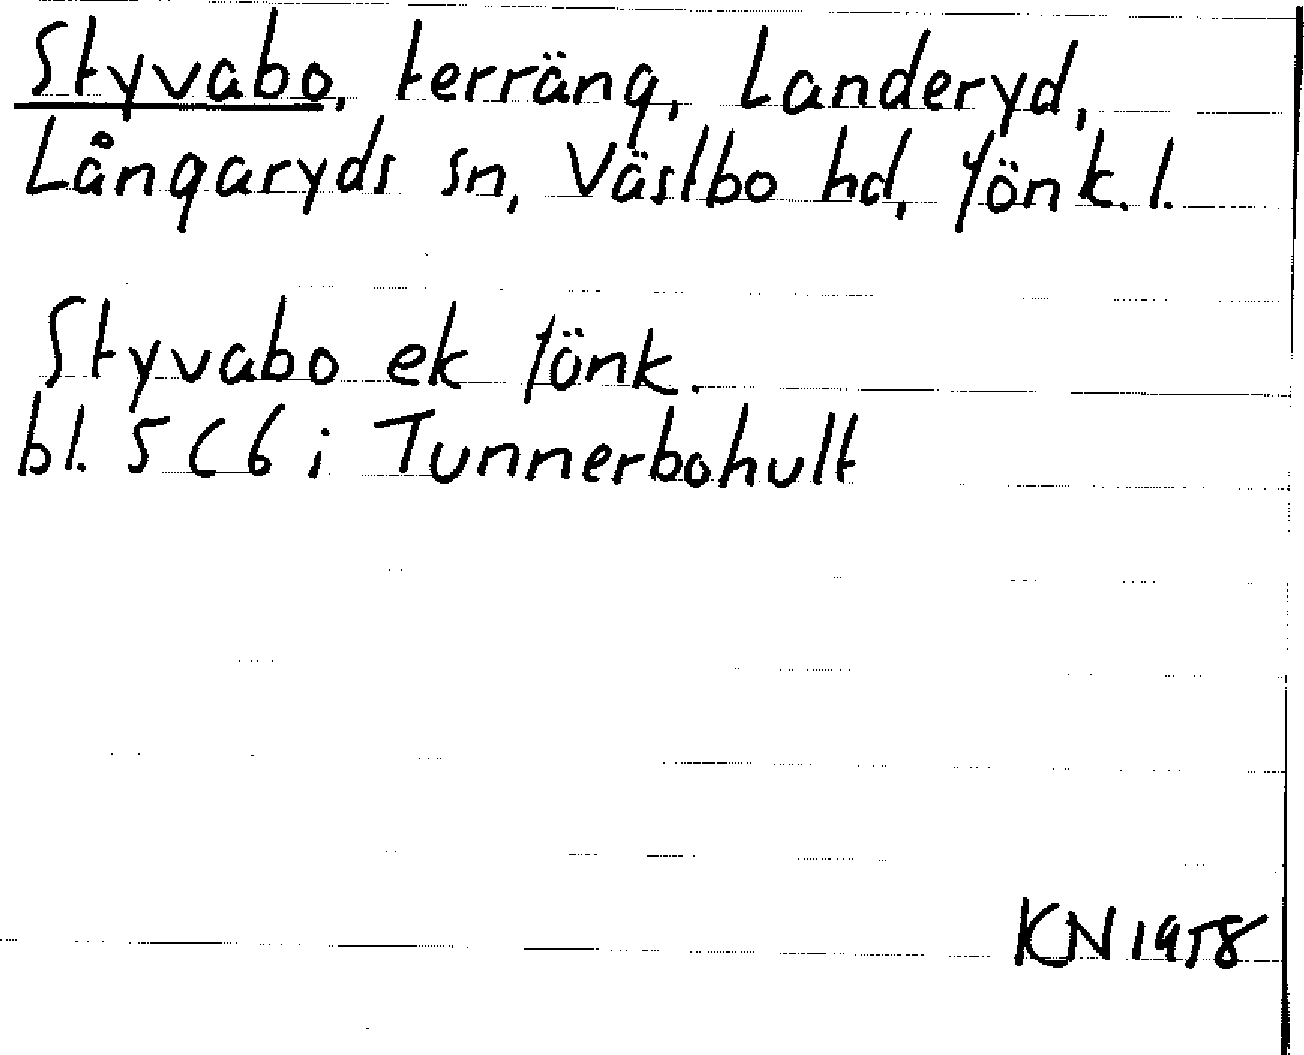 Styvabo, terräng, Landeryd,
Långaryds sn, Västbo hd, Jönk. l.
Styvabo ek Jönk.
bl. 5 C 6 i Tunnerbohult
KN 1958